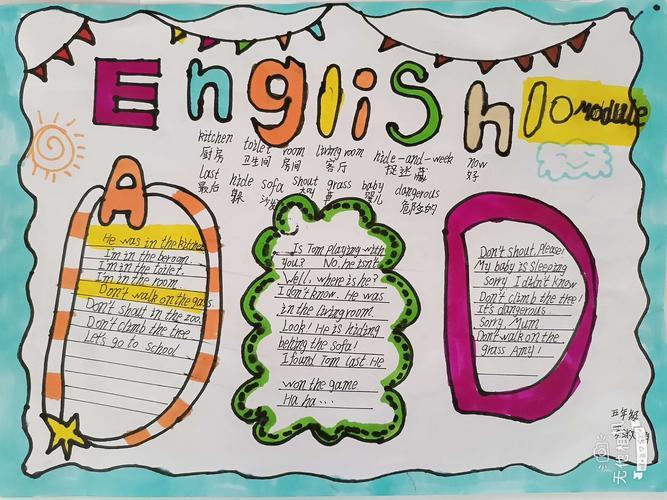 English 10 Module
kitchen toilet room living room hide-and-week now
厨房 卫生间 房间 客厅 捉迷藏 好
last hide sofa shout grass baby dangerous
最后 躲 沙发 大叫 草 婴儿 危险的
A
He was in the kitchen
I'm in the beroom.
I'm in the toilet.
I'm in the room
Don't walk on the gass.
Don't shout in the zoo.
Don't climb the tree
Let's go to school
Is Tom playing with
you? No. he isn't
Well, where is he?
I don't know. He was
in the living room.
Look! He is hiding
behing the sofa!
I found Tom last He
won the game
Ha ha...
D
Don't shout, Please!
My baby is sleeping
Sorry I didn't know
Don't climb the tree!
It's dangerous.
Sorry, Mum
Don't walk on the
grass Amy!
五年级
无他相机